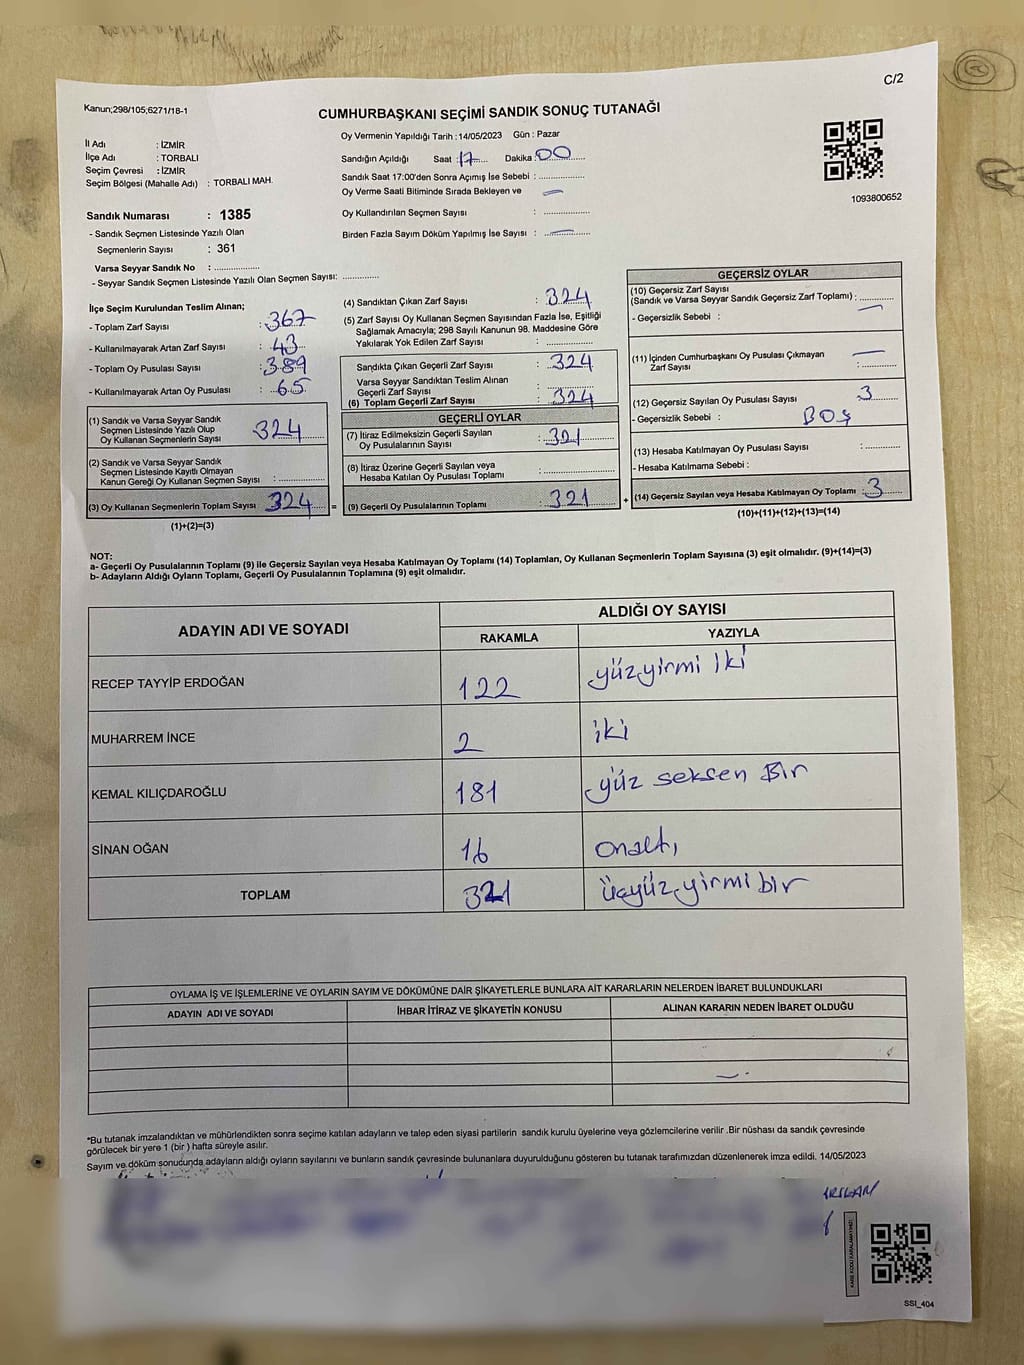 C/2
Kanun;298/105;6271/18-1
CUMHURBAŞKANI SEÇİMİ SANDIK SONUÇ TUTANAĞI
İl Adı : İZMİR
İlçe Adı : TORBALI
Seçim Çevresi : İZMİR
Seçim Bölgesi (Mahalle Adı) : TORBALI MAH.
Oy Vermenin Yapıldığı Tarih :14/05/2023 Gün : Pazar
Sandığın Açıldığı Saat :17...... Dakika :00............
Sandık Saat 17:00'den Sonra Açımış İse Sebebi : ....................
Oy Verme Saati Bitiminde Sırada Bekleyen ve —
Oy Kullandırılan Seçmen Sayısı : ....................
Birden Fazla Sayım Döküm Yapılmış İse Sayısı : —
1093800652
Sandık Numarası : 1385
- Sandık Seçmen Listesinde Yazılı Olan
Seçmenlerin Sayısı : 361
Varsa Seyyar Sandık No : ....................
- Seyyar Sandık Seçmen Listesinde Yazılı Olan Seçmen Sayısı: ................
İlçe Seçim Kurulundan Teslim Alınan;
- Toplam Zarf Sayısı : 367
- Kullanılmayarak Artan Zarf Sayısı : 43
- Toplam Oy Pusulası Sayısı : 389
- Kullanılmayarak Artan Oy Pusulası : 65
(1) Sandık ve Varsa Seyyar Sandık
Seçmen Listesinde Yazılı Olup
Oy Kullanan Seçmenlerin Sayısı 324
(2) Sandık ve Varsa Seyyar Sandık
Seçmen Listesinde Kayıtlı Olmayan
Kanun Gereği Oy Kullanan Seçmen Sayısı : ....................
(3) Oy Kullanan Seçmenlerin Toplam Sayısı 324 =
(1)+(2)=(3)
(4) Sandıktan Çıkan Zarf Sayısı : 324
(5) Zarf Sayısı Oy Kullanan Seçmen Sayısından Fazla İse, Eşitliği
Sağlamak Amacıyla; 298 Sayılı Kanunun 98. Maddesine Göre
Yakılarak Yok Edilen Zarf Sayısı : ....................
Sandıkta Çıkan Geçerli Zarf Sayısı : 324
Varsa Seyyar Sandıktan Teslim Alınan
Geçerli Zarf Sayısı : ....................
(6) Toplam Geçerli Zarf Sayısı : 324
GEÇERLİ OYLAR
(7) İtiraz Edilmeksizin Geçerli Sayılan
Oy Pusulalarının Sayısı : 321
(8) İtiraz Üzerine Geçerli Sayılan veya
Hesaba Katılan Oy Pusulası Toplamı : ....................
(9) Geçerli Oy Pusulalarının Toplamı : 321 +
GEÇERSİZ OYLAR
(10) Geçersiz Zarf Sayısı
(Sandık ve Varsa Seyyar Sandık Geçersiz Zarf Toplamı) : ............
- Geçersizlik Sebebi : —
(11) İçinden Cumhurbaşkanı Oy Pusulası Çıkmayan —
Zarf Sayısı : ............
(12) Geçersiz Sayılan Oy Pusulası Sayısı : 3
- Geçersizlik Sebebi : BOŞ
(13) Hesaba Katılmayan Oy Pusulası Sayısı : ............
- Hesaba Katılmama Sebebi :
(14) Geçersiz Sayılan veya Hesaba Katılmayan Oy Toplamı : 3
(10)+(11)+(12)+(13)=(14)
NOT:
a- Geçerli Oy Pusulalarının Toplamı (9) ile Geçersiz Sayılan veya Hesaba Katılmayan Oy Toplamı (14) Toplamları, Oy Kullanan Seçmenlerin Toplam Sayısına (3) eşit olmalıdır. (9)+(14)=(3)
b- Adayların Aldığı Oyların Toplamı, Geçerli Oy Pusulalarının Toplamına (9) eşit olmalıdır.
ADAYIN ADI VE SOYADI ALDIĞI OY SAYISI
RAKAMLA YAZIYLA
RECEP TAYYİP ERDOĞAN 122 yüzyirmi iki
MUHARREM İNCE 2 iki
KEMAL KILIÇDAROĞLU 181 yüz seksen Bir
SİNAN OĞAN 16 onaltı
TOPLAM 321 üçyüzyirmibir
OYLAMA İŞ VE İŞLEMLERİNE VE OYLARIN SAYIM VE DÖKÜMÜNE DAİR ŞİKAYETLERLE BUNLARA AİT KARARLARIN NELERDEN İBARET BULUNDUKLARI
ADAYIN ADI VE SOYADI İHBAR İTİRAZ VE ŞİKAYETİN KONUSU ALINAN KARARIN NEDEN İBARET OLDUĞU
*Bu tutanak imzalandıktan ve mühürlendikten sonra seçime katılan adayların ve talep eden siyasi partilerin sandık kurulu üyelerine veya gözlemcilerine verilir .Bir nüshası da sandık çevresinde
görülecek bir yere 1 (bir ) hafta süreyle asılır.
Sayım ve döküm sonucunda adayların aldığı oyların sayılarını ve bunların sandık çevresinde bulunanlara duyurulduğunu gösteren bu tutanak tarafımızdan düzenlenerek imza edildi. 14/05/2023
KARE KODU KARALAMAYINIZ!
SSI_404